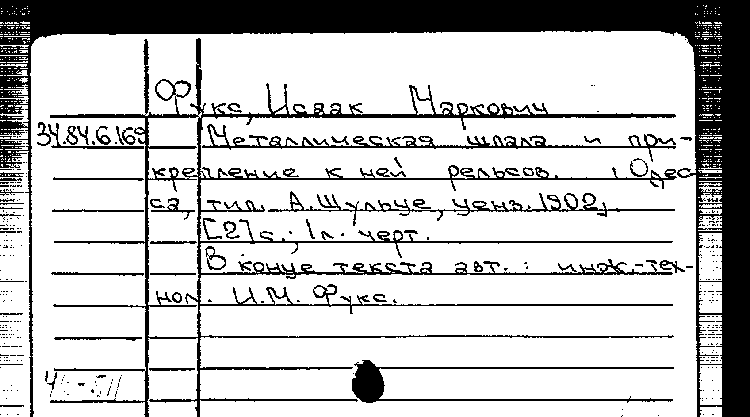 Фукс, Исаак Маркович
34.84.6.169 Металлическая шпала и при-
крепление к ней рельсов. Одес-
са, тип. А. Шульце, ценз. 1902.
[2] с.; 1 л. черт.
В конце текста авт.: инж.-тех-
нол. И.М. Фукс.